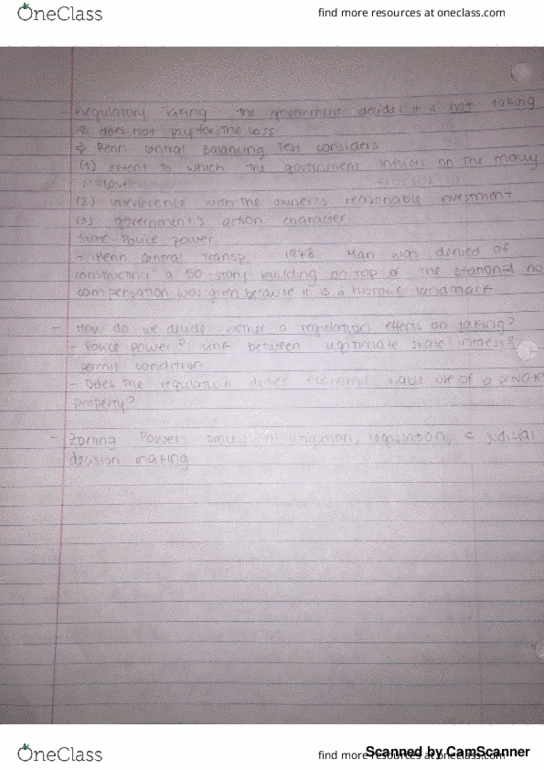 OneClass
find more resources at oneclass.com
- Regulatory Taking the government decides it is not taking
& does not pay for the loss
Penn central Balancing Test considers
(1) Extent to which the government intrudes on the money
(2) interference with the owner's reasonable investment
(3) government's action character
State-Police power
- Penn Central Transp. 1978 Man was denied of
constructing a 50-story building on top of the station & no
compensation was given because it is a historic landmark
- How do we decide wether a regulation effects on taking?
- Police Power link between legitimate state interest &
permit condition
- Does the regulation denies economic use of a private
property?
- Zoning Power of litigation, legislation, & judicial
decision making
OneClass
find more resources at oneclass.com
Scanned by CamScanner